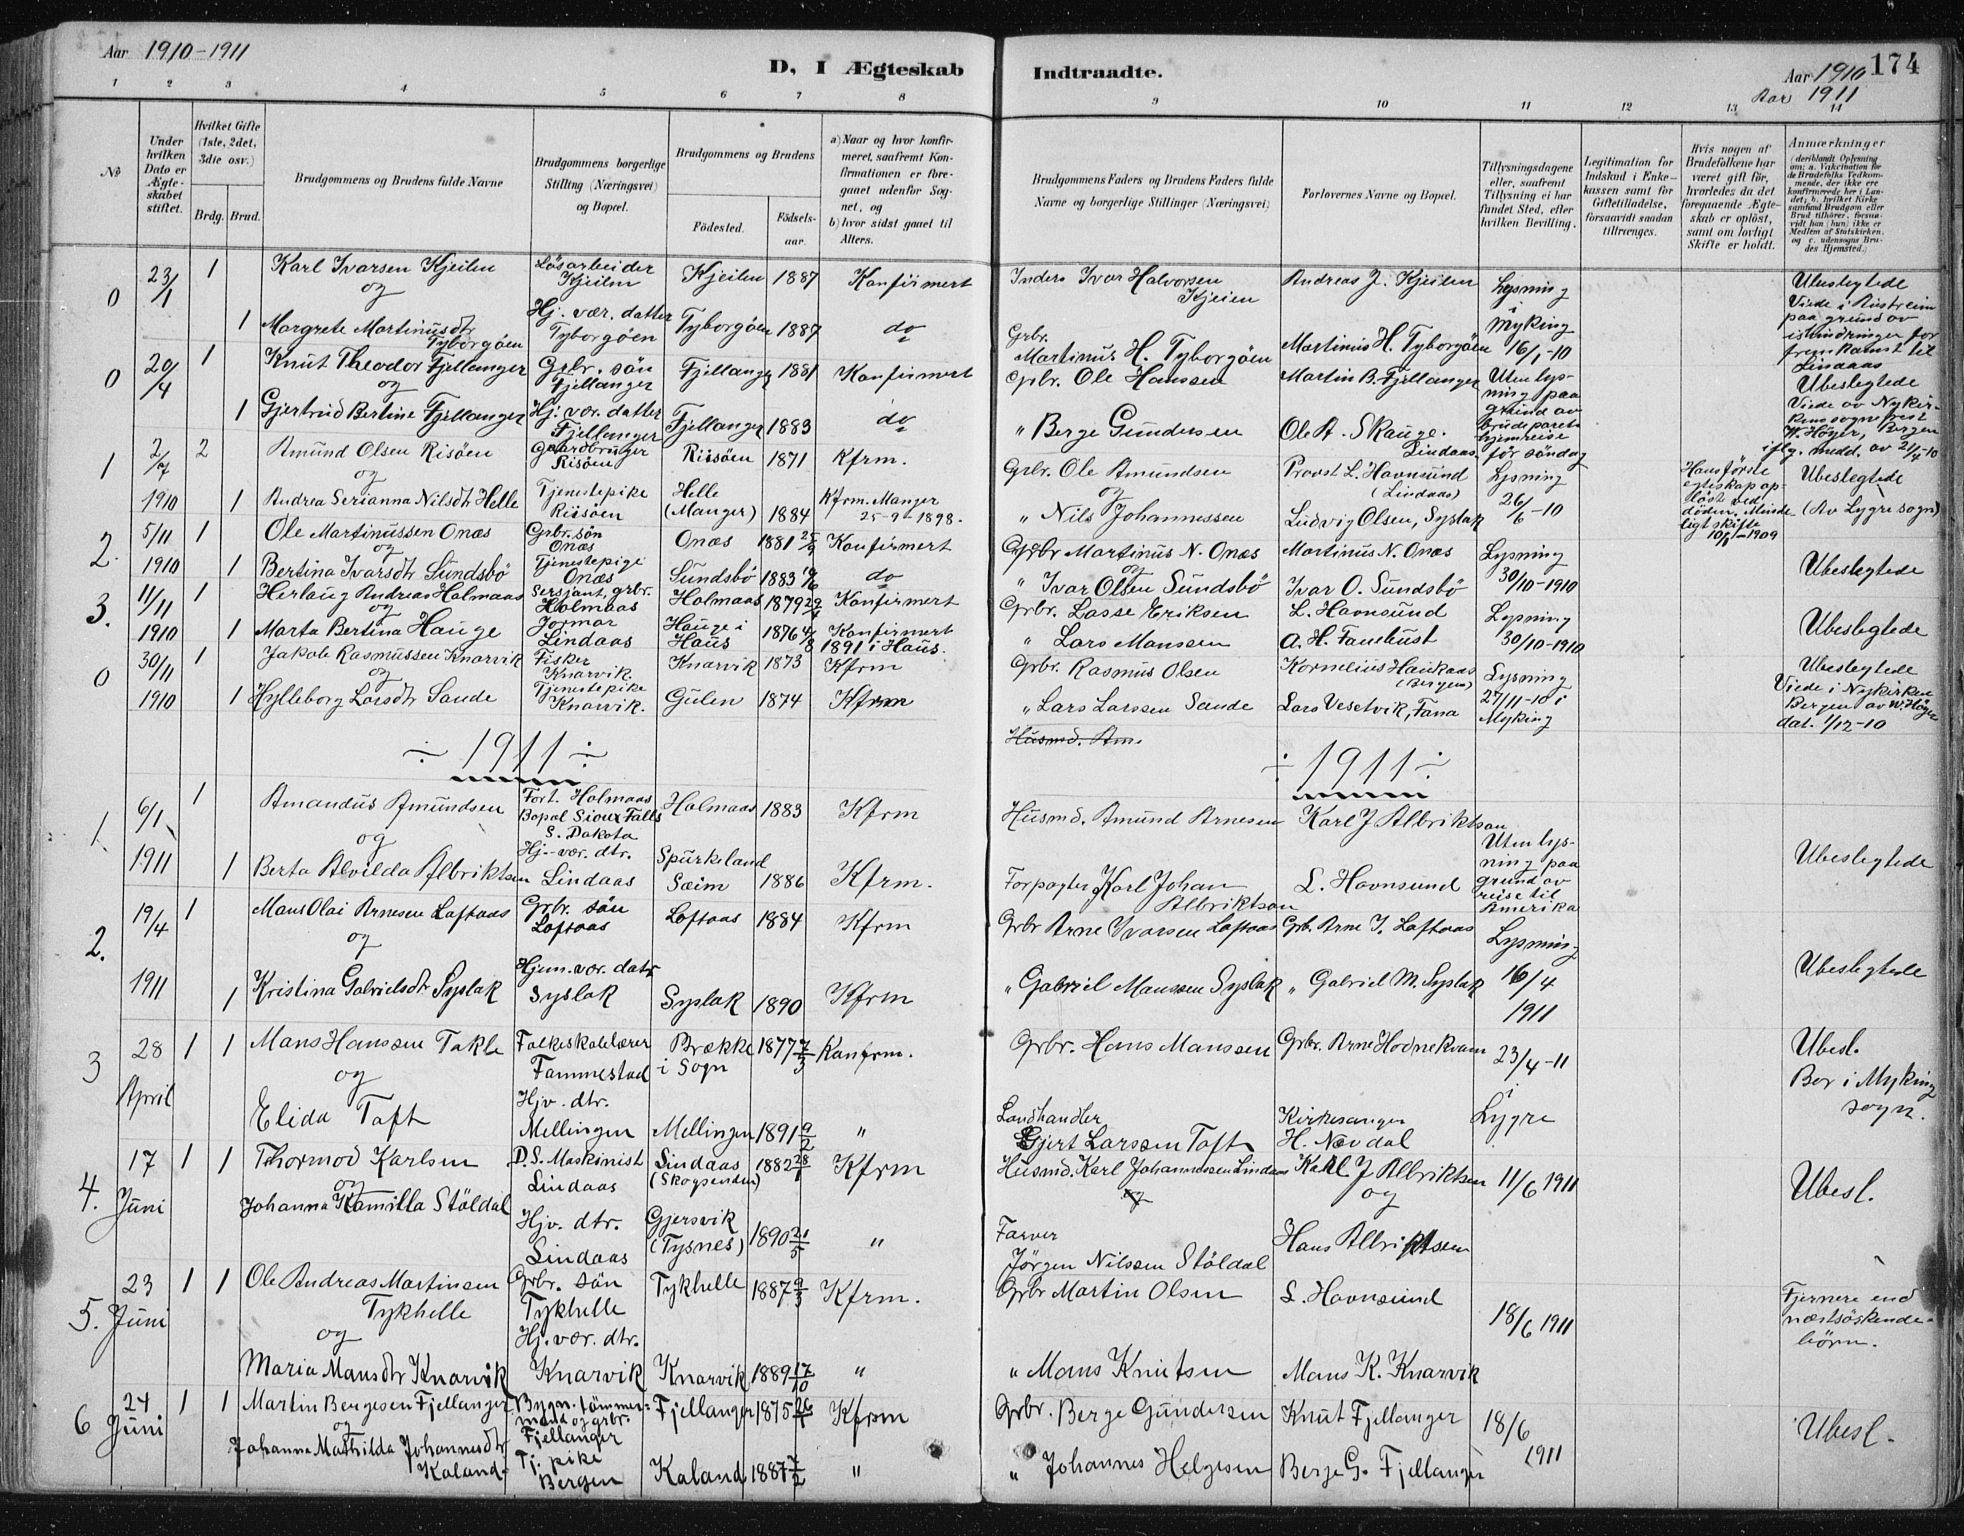 Aar 1910-1911
D, I Ægteskab Indtraadte.
Aar 1910 174
Aar 1911
1 2 3 4 5 6 7 8 9 10 11 12 13 14
No
Under hvilken Dato er Ægteskabet stiftet.
Hvilket Gifte (1ste, 2det, 3die osv.)
Brdg. Brud.
Brudgommens og Brudens fulde Navne
Brudgommens borgerlige Stilling (Næringsvei) og Bopæl.
Brudgommens og Brudens
Fødested. Fødselsaar.
a) Naar og hvor konfirmeret, saafremt Konfirmationen er foregaaet udenfor Sognet, og
b) hvor sidst gaaet til Alters.
Brudgommens Faders og Brudens Faders fulde Navne og borgerlige Stillinger (Næringsvei)
Forlovernes Navne og Bopæl.
Tillysningsdagene eller, saafremt Tillysning ei har fundet Sted, efter hvilken Bevilling.
Legitimation for Indskud i Enkekassen samt for Giftetilladelse, forsaavidt saadan tiltrænges.
Hvis nogen af Brudefolkene har været gift før, hvorledes da det foregaaende Ægteskab er opløst, samt om lovligt Skifte er holdt.
Anmærkninger
(deriblandt Oplysning om: a. Vakcination for de Brudefolks Vedkommende, der ikke ere konfirmerede her i Landet; b. hvilket Kirkesamfund Brudgom eller Brud tilhører, forsaavidt han (hun) ikke er Medlem af Statskirken, og c. udensogns Brudes Hjemsted.)
0 23/1 1 Karl Ivarsen Kjeilen Løsarbeider Kjeilen Kjeilen 1887 Konfirmert Inders Ivar Halvorsen Kjeien Andreas J. Kjeilen Lysning i Myking 16/1-10 Ubeslegtede Viede i Austreim paa grund av ishindringer for fremkomst til Lindaas
og
1 Margrete Martinusdtr Tyborgøen Hj. vær. datter Tyborgøen Tyborgøen 1887 do Grbr. Martinus H. Tyborgøen Martinus H. Tyborgøen
0 20/4 1 Knut Theodor Fjellanger Grbr. søn Fjellanger Fjellanger 1881 Konfirmert Grbr. Ole Hanssen Martin B. Fjellanger Uten lysning paa grund av Brudeparets hjemreise før søndag Ubeslegtede Viede av Nykirkens sogneprest W. Høyer, Bergen iflg. medd. av 21/4-10
og
1 Gjertrud Bertine Fjellanger Hj. vær. datter Fjellanger Fjellanger 1883 do " Berge Gundersen Ole A. Skauge. Lindaas
1 2/7 2 Amund Olsen Risøen Gaardbruger Risøen Riisøen 1871 Kfrm. Grbr. Ole Amundsen Provst L. Havnsund (Lindaas) Lysning 26/6-10 Hans første egteskap opløst ved døden, Mindeligt skifte 1909 Ubeslegtede (Av Lygre sogn)
og
1910 1 Andrea Serianna Nilsdtr Helle Tjenestepike Riisøen Helle (Manger) 1884 Kfrm. Manger 25-9-1898. " Nils Johannessen Ludvig Olsen, Syslak
2. 5/11 1 Ole Martinussen Onæs Grbr. søn Onæs Onæs 1881 Konfirmert Grbr Martinus N. Onæs Martinus N. Onæs Lysning 30/10-1910 Ubeslegtede
og
1910 1 Bertina Ivarsdtr Sundsbø Tjenestepige Onæs Sundsbø 1883 do " Ivar Olsen Sundsbø Ivar O. Sundsbø
3. 11/11 1 Herlaug Andreas Holmaas Sersjant, grbr. Holmaas Holmaas 1879 Konfirmert Grbr. Lasse Eriksen L. Havnsund Lysning 30/10-1910 Ubeslegtede
og
1910 1 Marta Bertina Hauge Jormor Lindaas Hauge i Haus 1876 4/8 Konfirmert 1891 i Haus. " Lars Monssen A. H. Fanebust
0 30/11 1 Jakob Rasmussen Knarvik Fisker Knarvik Knarvik 1873 Kfrm Grbr. Rasmus Olsen Kornelius Haukaas (Bergen) Lysning 27/11-10 i Myking Ubeslegtede Viede i Nykirken Bergen av W. Høyer dat. 1/12-10
og
1910 1 Hylleborg Larsdtr Sande Tjenestepike Knarvik. Gulen 1874 Kfrm " Lars Larssen Sande Lars Vesetvik, Fana
÷ 1911 ÷ Husmd. Am. ÷ 1911 ÷
1. 6/1 1 Amandus Amundsen Fort. Holmaas Bopæl Sioux Falls S. Dakota Holmaas 1883 Kfrm Husmd. Amund Arnesen Karl J Albriktson Uten lysning paa grund av reise til Amerika Ubeslegtede
og
1911 1 Berta Alvilda Albriktsen Hj.-vær. dtr. Lindaas Spurkeland Sæim 1886 Kfrm. Forpagter Karl Johan Albriktson L. Havnsund
2. 19/4 1 Mans Olai Arnesen Loftaas Grbr. søn Loftaas Loftaas 1884 Kfrm Grbr Arne Ivarsen Loftaas Grb. Arne I. Loftaas Lysning 16/4 1911 Ubeslegtede
og
1911 1 Kristina Gabrielsdtr Syslak Hjem.vær. datr Syslak Syslak 1890 Kfrm " Gabriel Manssen Syslak " Gabriel M. Syslak
3 28 April 1 1 Mans Hanssen Takle Folkeskolelærer Fammestad Brække i Sogn 1877 7/3 Konfrm. Grbr. Hans Manssen Grbr. Arne Hodnekvam 23/4-11 i Lygre Ubesl. Bor i Myking sogn.
og
Elida Toft Hjv. dtr. Mellingen Mellingen 1891 9/2 " Landhandler Gjert Larssen Toft Kirkesanger H. Nævdal
4. 17 Juni 1 1 Thormod Karlsen D.S. Maskinist Lindaas Lindaas (Skogsenden) 1882 28/1 Kfrm Husmd. Karl Johannessen Lindaas Karl J Albriktsen 11/6 1911 Ubesl.
og og og
Johanna Kamilla Støldal Hjv. dtr. Lindaas Gjersvik (Tysnes) 1890 21/5 " Farver Jørgen Nilssen Støldal Hans Albriktsen
5. 23 Juni 1 1 Ole Andreas Martinsen Tykhelle Grbr. søn Tykhelle Tykhelle 1887 9/3 Kfrm. Grbr Martin Olsen L. Havnsund 18/6 1911 Fjernere end næstsøskendebørn.
og
Maria Mansdtr Knarvik Hj. vær. dtr. Knarvik Knarvik 1889 17/10 " " Mans Knutsen Mans K. Knarvik
6 24 Juni 1 1 Martin Bergesen Fjellanger Bygn. tømmermand og grbr. Fjellanger Fjellanger 1875 26/1 Kfrm Grbr. Berge Gundersen Knut Fjellanger 18/6 1911 Ubesl.
og
Johanna Mathilda Johannesdtr Kaland Tj. pike Bergen Kaland 1887 7/2 " " Johannes Helgesen Berge G. Fjellanger